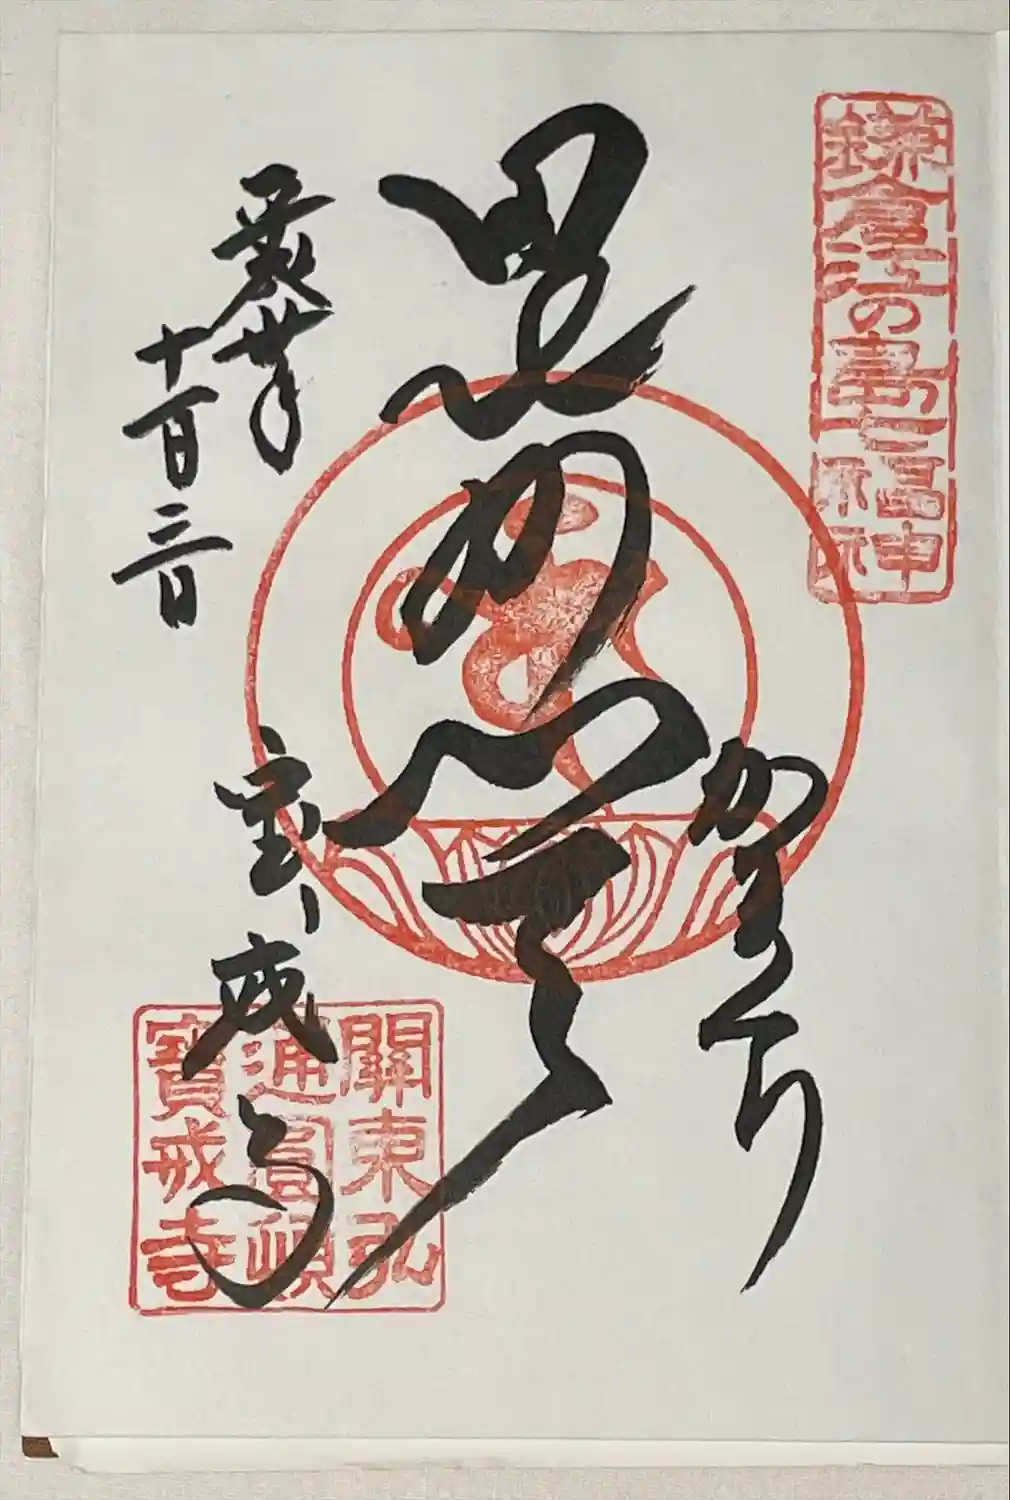 鎌倉江の島七福神
かまくら
毘沙門天
宝戒寺
關東弘
通圓頓
寶戒寺